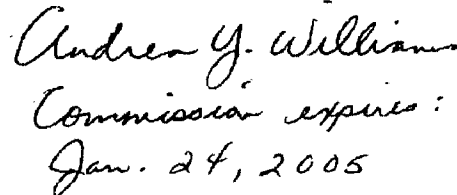 Andrea Y. Williams
Commission expires:
Jan. 24, 2005